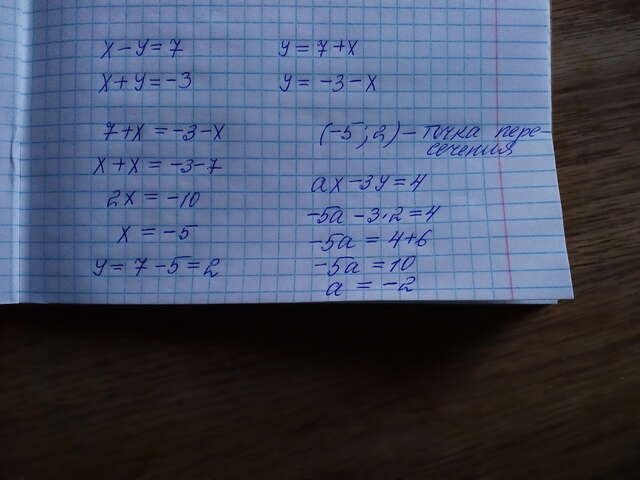 x - y = 7
x + y = -3
y = 7 + x
y = -3 - x
7 + x = -3 - x
x + x = -3 - 7
2x = -10
x = -5
y = 7 - 5 = 2
(-5; 2) - точка пере-
сечения
ax - 3y = 4
-5a - 3·2 = 4
-5a = 4 + 6
-5a = 10
a = -2